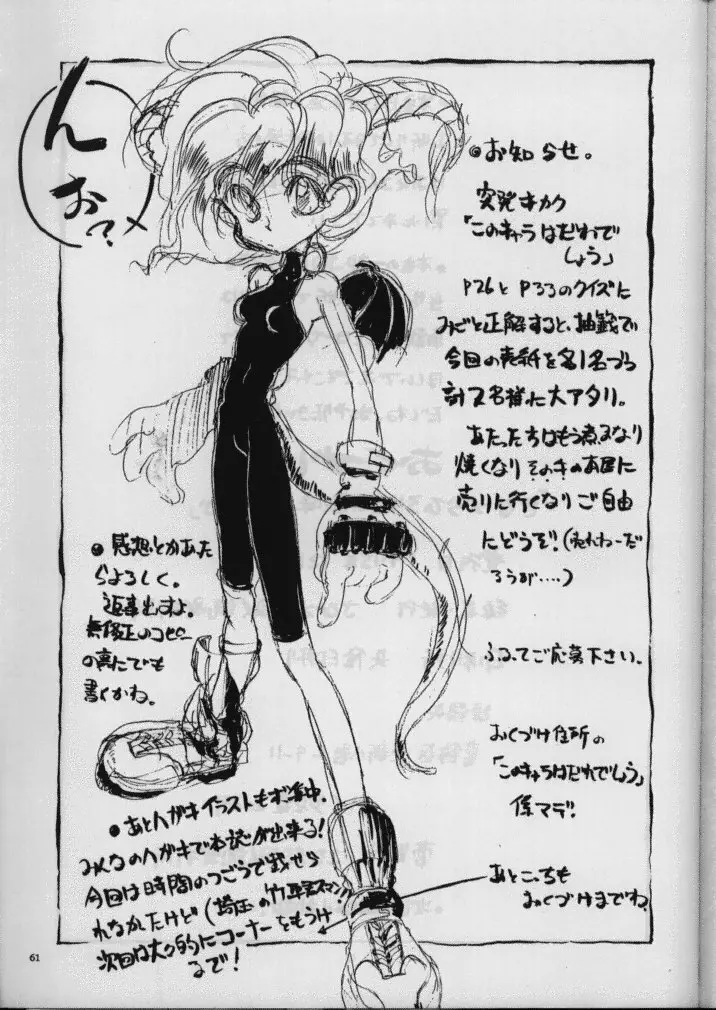 んお?
●お知らせ。
突発キカク
「このキャラはだれで
しょう」
P26とP33のクイズに
みごと正解すると、抽籤で
今回の表紙を各1名づつ
計2名様に大アタリ。
あたった方はもう煮るなり
焼くなりそのキのお店に
売りに行くなりご自由
にどうぞ!(売れねーだ
ろうが....)
ふるってご応募下さい。
おくづけ住所の
「このキャラはだれでしょう」
係マデ!
●感想とかあた
らよろしく。
返事出すよ。
無修正のコピー
の裏にでも
書くかね。
●あとハガキイラストもボ集中。
みんなのハガキで本誌が出来る!
今回は時間のつごうで載せら
れなかたけど(埼玉の竹平寺スマン!!)
次回は大々的にコーナーをもうけ
るで!
あとこっちも
おくづけまでね
61